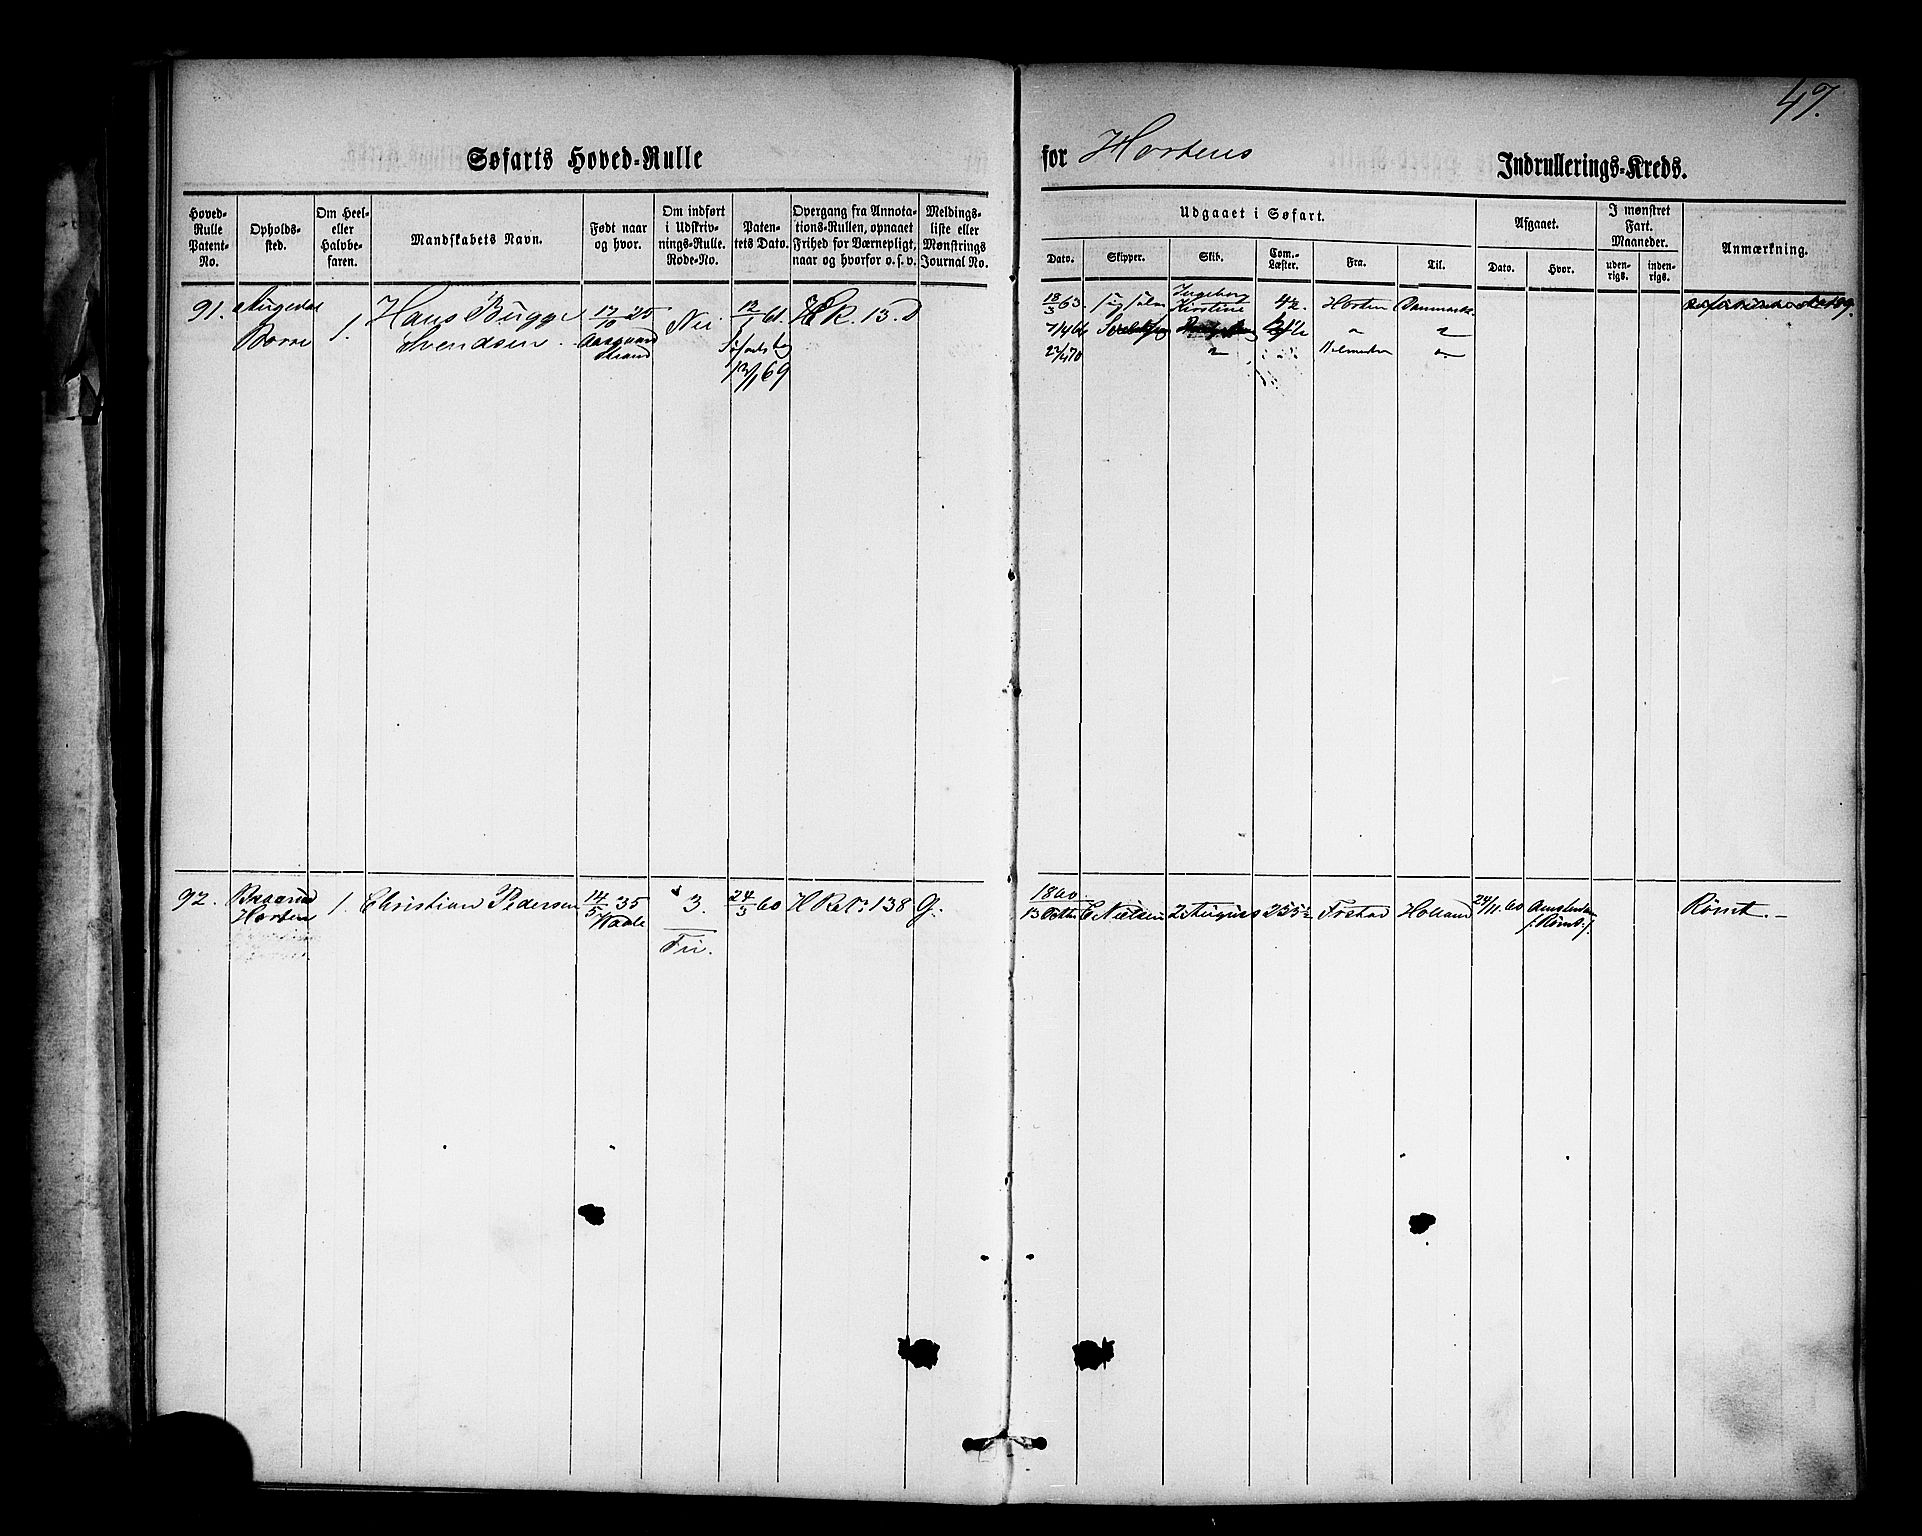 47.
Søfarts Hoved-Rulle
for Hortens Indrullerings-Kreds.
Hoved-Rulle Patent-No.
Opholds-sted.
Om Heel- eller Halvbe-faren.
Mandskabets Navn.
Født naar og hvor.
Om indført i Udskriv-nings-Rulle. Rode-No.
Paten-tets Dato.
Overgang fra Annota-tions-Rullen, opnaaet Frihed for Værnepligt, naar og hvorfor o. s. v.
Meldings-liste eller Mønstrings Journal No.
Udgaaet i Søfart.
Dato.
Skipper.
Skib.
Com.-Læster.
Fra.
Til.
Afgaaet.
Dato.
Hvor.
I mønstret Fart. Maaneder.
uden-rigs.
inden-rigs.
Anmærkning.
91.
Borre
1.
Hans Bugge
Svendsen.
25
Aasgaard
Strand
Nei.
12/1 61.
12/1 69
H.R. 13. d
18/3 63
Ingeborg
Kirstine
42
Horsten
Danmark
7/4 64
"
"
22/4 70
"
Holmestrand
"
92.
Horten
1.
Christian Pedersen
14/5 35
Vaale
3.
Fri.
24/3 60
H R No 138
G.
1860
13 Octbr
E Nielsen
2 August
255½
Frstad
Holland
24/11.60
Amsterdam
/: Rømt :/
Rømt. -